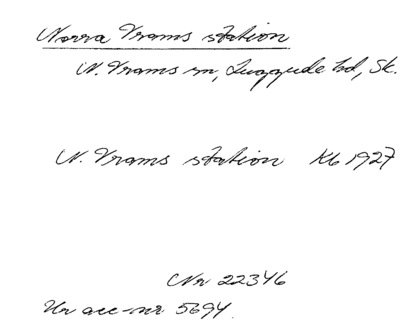 Norra Vrams station
N. Vrams sn, Luggude hd, Sk.
N. Vrams station Kb 1927
Nr 22346
Ur acc-nr 5694.